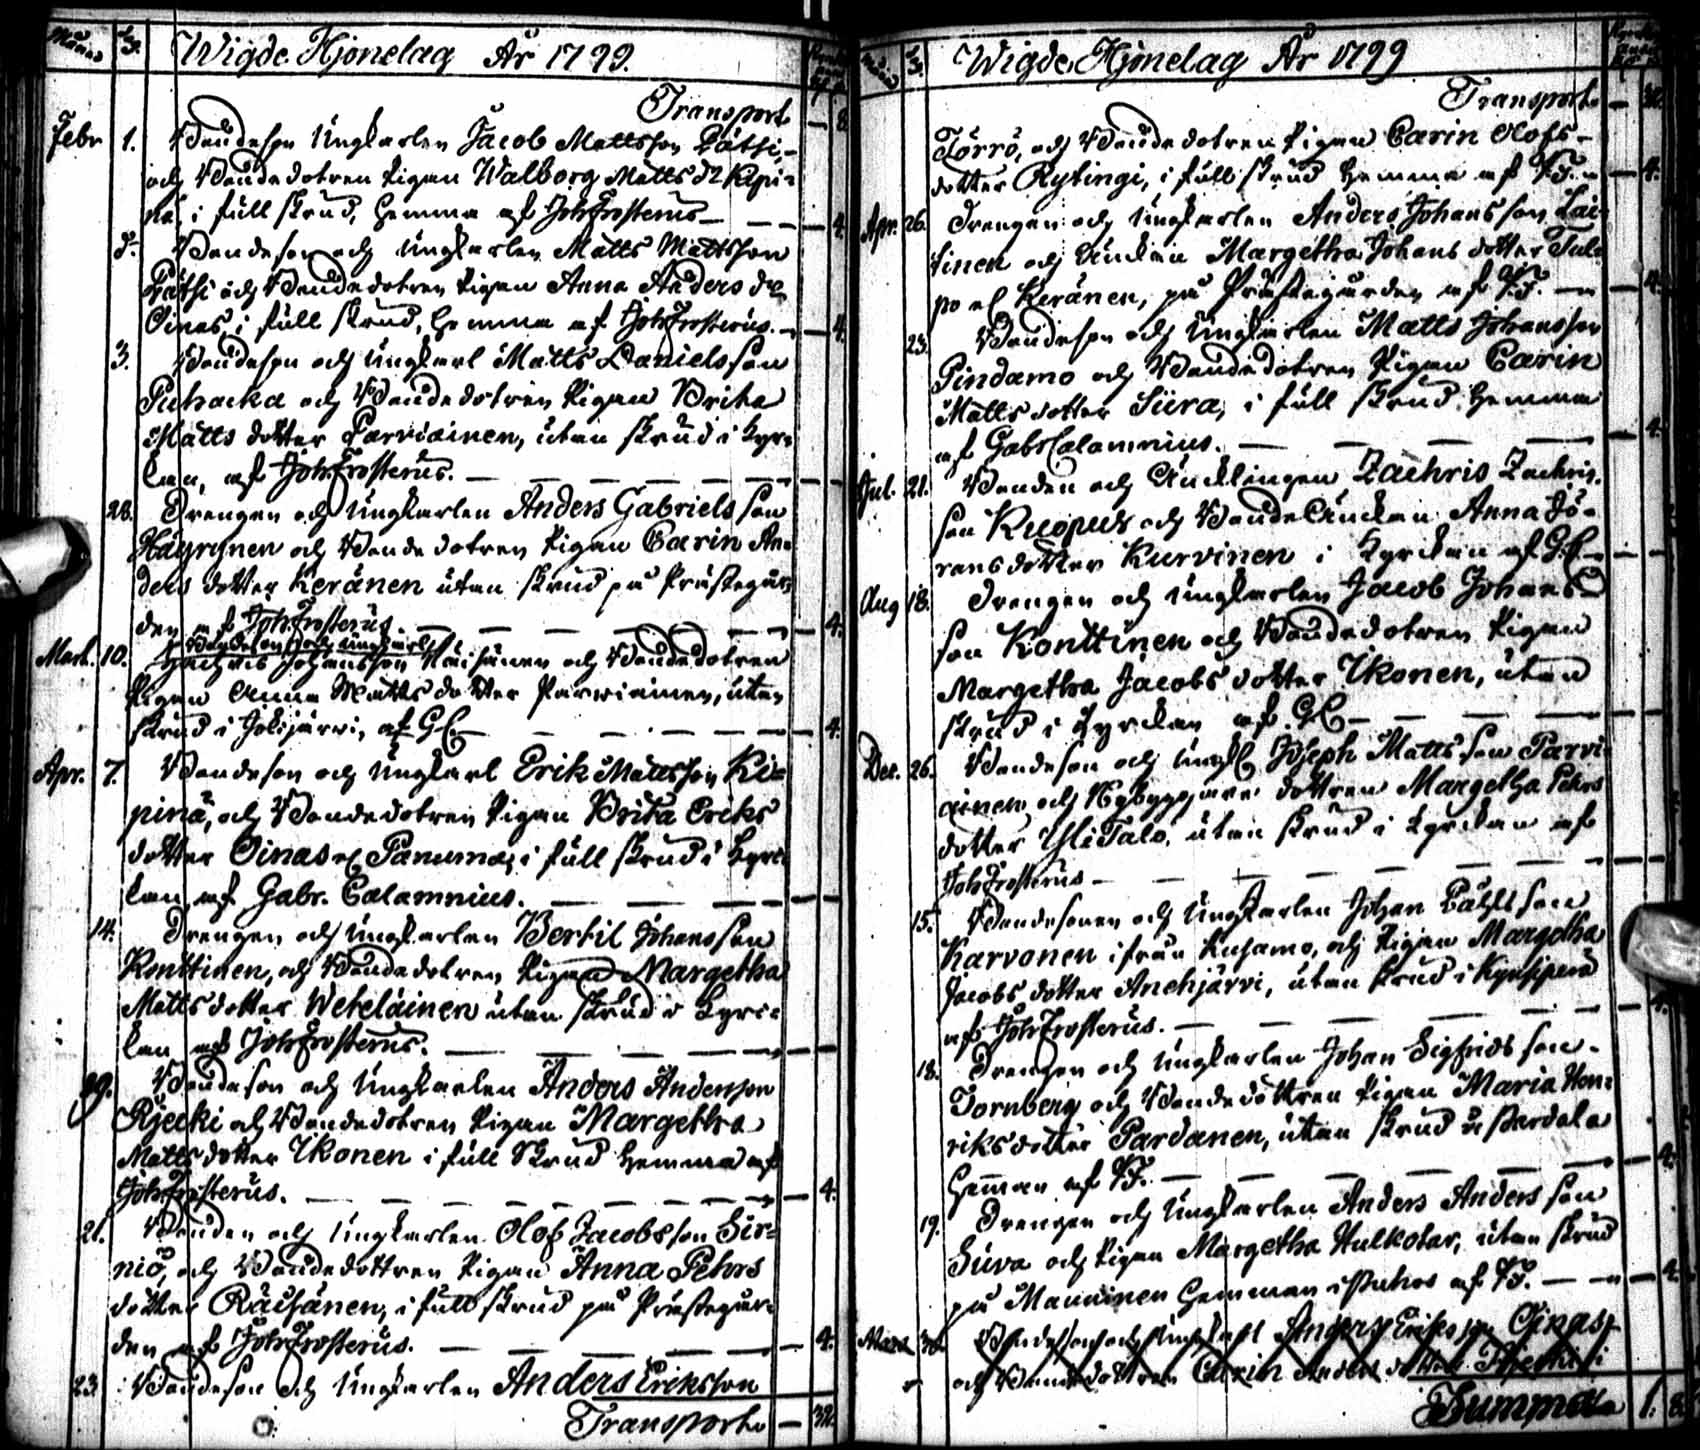 Månad D. Wigde Hjonelag År 1799.
Transport — 8
Febr 1. Bondeson Ungkarlen Jacob Mattsson Pätsi,
och Bondedotren Pigan Walborg Matts dr Kipi-
nä, i full skrud, hemma af Joh Frosterus — — 4.
d:o Bondeson och Ungkarlen Matts Mattsson
Pätsi och Bondedotren Pigan Anna Anders dr
Oinas, i full skrud, hemma af Joh Frosterus. — 4.
3. Bondeson och Ungkarl Matts Danielsson
Puhacka och Bondedotren Pigan Brita
Matts dotter Parviainen, utan skrud i Kyr-
kan, af Joh. Frosterus. — — — —
28. Drengen och Ungkarlen Anders Gabrielsson
Häyrynen och Bonde dotren Pigan Carin An-
ders dotter Keränen utan skrud på Prästegår-
den af Joh Frosterus — — — 4.
Bondeson och Ungkarl
Mart. 10. Zachris Johansson Räisänen och Bondedotren
Pigan Anna Matts dotter Parwiainen, utan
skrud i Jokijärwi, af GC. — — — 4.
Apr. 7. Bondeson och Ungkarl Erik Mattsson Ki-
pinä, och Bondedotren Pigan Brita Eriks
dotter Oinas el Panuma, i full skrud i Kyr-
kan, af Gabr. Calamnius. — — —
14. Drengen och Ungkarlen Bertil Johansson
Konttinen, och Bondedotren Pigan Margetha
Matts dotter Weteläinen utan skrud i Kyr-
kan af Joh Frosterus. — — —
Bondeson och Ungkarlen Anders Andersson
Rjecki och Bondedotren Pigan Margetha
Matts dotter Ikonen i full Skrud hemma af
Joh Frosterus. — — — 4.
21. Bonden och Ungkarlen Olof Jacobsson Sir-
niö, och Bondedottren Pigan Anna Pehrs
dotter Räisänen, i full skrud på Prästegår-
den af Joh Frosterus. — — — 4.
23. Bondeson och Ungkarlen Anders Eriksson
Transport — 32.
Wigde Hjonelag År 1799
Transport — 32.
Törrö, och Bondedotren Pigan Carin Olofs-
dotter Rytingi, i full skrud hemma af J.F. — 4.
Apr. 26. Drengen och Ungkarlen Anders Johansson Lai-
tinen och Enkan Margetha Johans dotter Tul-
po el Keränen, på Prästegården af J.F. — 4.
23. Bondeson och Ungkarlen Matts Johansson
Pindamo och Bondedotren Pigan Carin
Matts dotter Siira, i full skrud hemma
af Gabr Calamnius. — — — 4.
Jul. 21. Bonden och Enklingen Zachris Zachris-
son Kuopus och BondeEnkan Anna Jö-
rans dotter Kurvinen i Kyrkan af G.C. —
Aug 18. Drengen och Ungkarlen Jacob Johans
son Konttinen och Bondedotren Pigan
Margetha Jacobs dotter Ikonen, utan
skrud i Kyrkan af GC — — —
Dec. 26. Bondeson och Ungk Joseph Mattsson Parvi-
ainen och Nybyggare dottren Margetha Pehrs
dotter YliTalo, utan skrud i Kyrkan af
Joh Frosterus — — —
15. Bondesonen och Ungkarlen Johan Påhlsson
Karvonen ifrån Kusamo, och Pigan Margetha
Jacobs dotter Anehjärvi, utan skrud i
af Joh Frosterus. — — — 4.
18. Drengen och Ungkarlen Johan Sigfridsson
Tornberg och Bondedottren Pigan Maria Hen-
riks dotter Pardanen, utan skrud
Heman af J.F. — — — 4.
19. Drengen och Ungkarlen Anders Andersson
Siiva och Pigan Margetha Hulkotar, utan skrud
på Manninen Hemman i Puhos af J.F. — 4.
Bondeson och Ungkarl Anders Eriksson Oinas
och Bondedottren Carin Anders dotter
Summa 1. 8